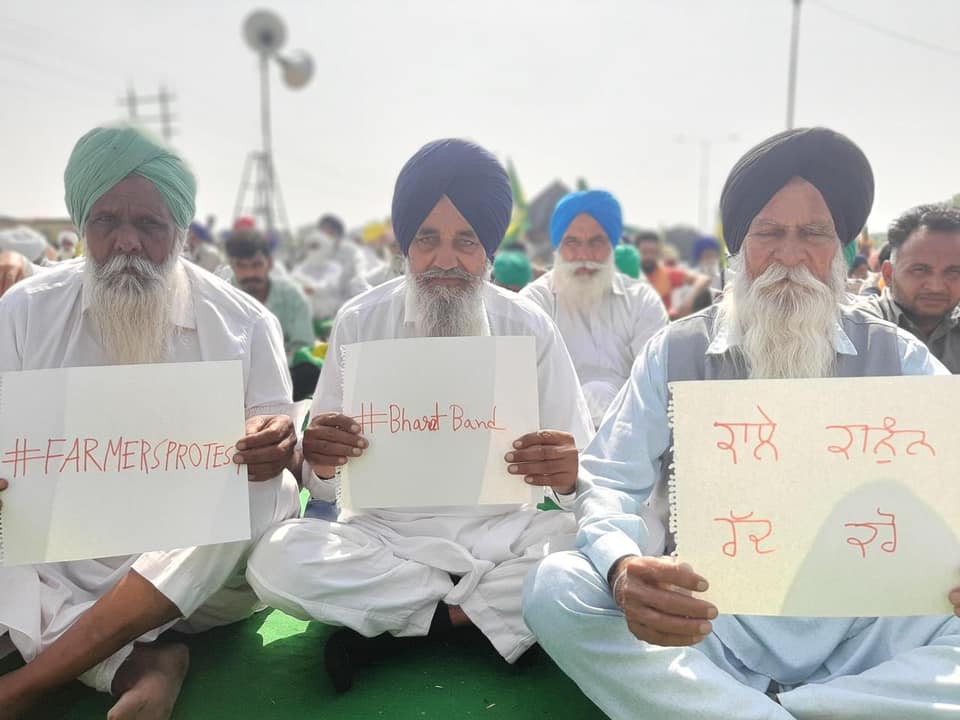 #FARMERSPROTEST
#Bharat Band
ਕਾਲੇ ਕਾਨੂੰਨ
ਰੱਦ ਕਰੋ